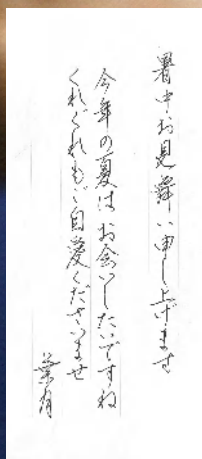 暑中お見舞い申し上げます
今年の夏はお会いしたいですね
くれぐれもご自愛くださいませ
葉月